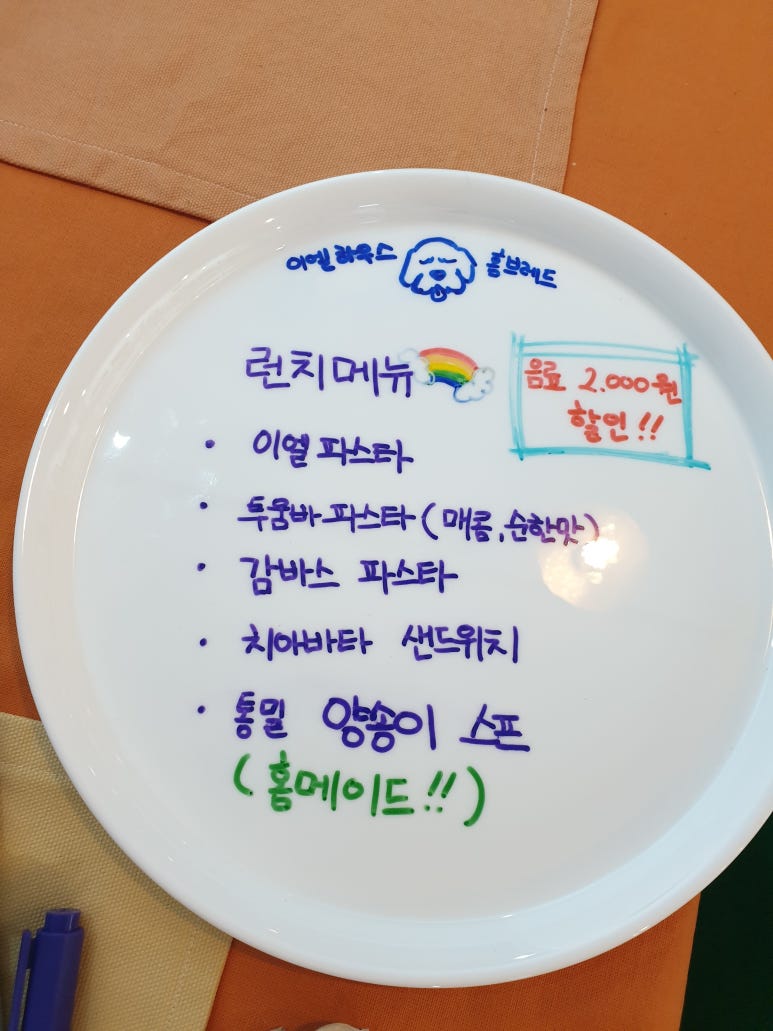 이엘하우스 홈브레드
런치메뉴
음료 2.000원
할인!!
· 이엘파스타
· 투움바파스타(매콤,순한맛)
· 감바스 파스타
· 치아바타 샌드위치
· 통밀 양송이 스프
(홈메이드!!)